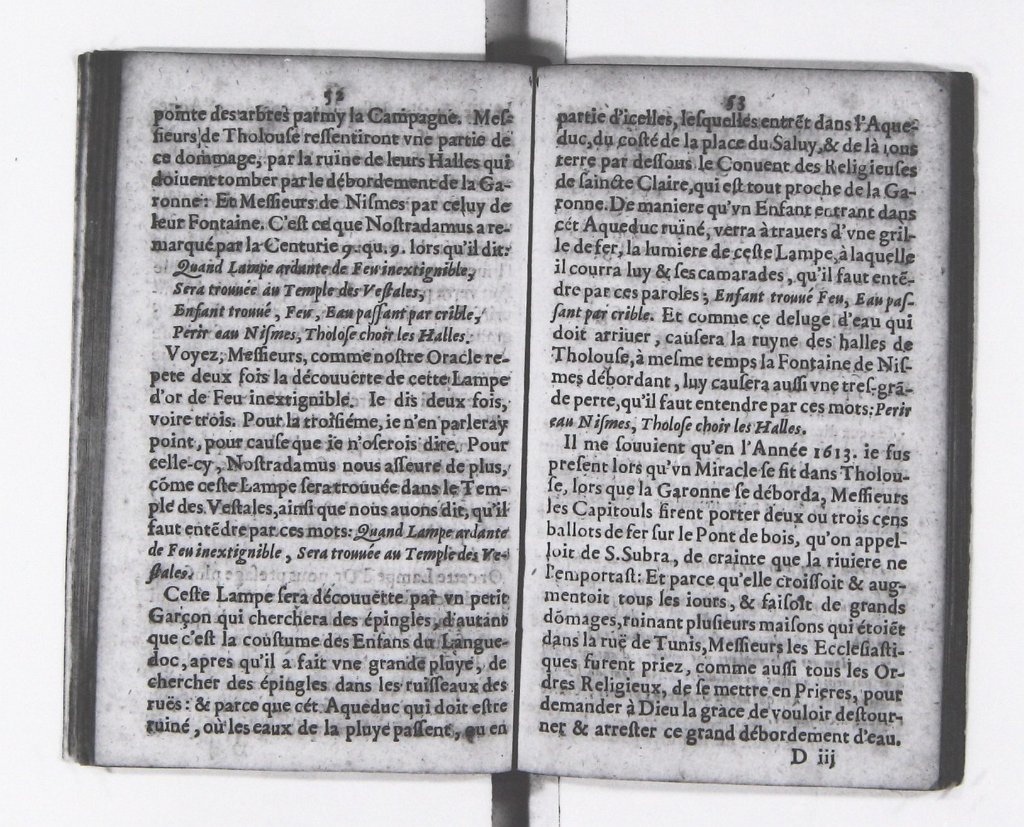 52
pointe des arbres parmy la Campagne. Meſ-
ſieurs de Tholouſe reſſentiront vne partie de
ce dommage, par la ruine de leurs Halles qui
doiuent tomber par le débordement de la Ga-
ronne: Et Meſſieurs de Niſmes par celuy de
leur Fontaine. C'eſt ce que Noſtradamus a re-
marqué par la Centurie 9. qu. 9. lors qu'il dit:
Quand Lampe ardante de Feu inextignible,
Sera trouuée au Temple des Veſtales,
Enfant trouué, Feu, Eau paſſant par crible,
Perir eau Niſmes, Tholoſe choir les Halles.
Voyez, Meſſieurs, comme noſtre Oracle re-
pete deux fois la découuerte de cette Lampe
d'or de Feu inextignible. Ie dis deux fois,
voire trois. Pour la troiſiéme, ie n'en parleray
point, pour cauſe que ie n'oſerois dire. Pour
celle-cy, Noſtradamus nous aſſeure de plus,
cōme ceſte Lampe ſera trouuée dans le Tem-
ple des Veſtales, ainſi que nous auons dit, qu'il
faut entēdre par ces mots: Quand Lampe ardante
de Feu inextignible, Sera trouuee au Temple des Ve-
ſtales.
Ceſte Lampe ſera découuerte par vn petit
Garçon qui cherchera des épingles, d'autant
que c'eſt la couſtume des Enfans du Langue-
doc, apres qu'il a fait vne grande pluye, de
chercher des épingles dans les ruiſſeaux des
ruës: & parce que cét Aqueduc qui doit eſtre
ruiné, où les eaux de la pluye paſſent, ou en
53
partie d'icelles, leſquelles entrēt dans l'Aque-
duc, du coſté de la place du Saluy, & de là ſous
terre par deſſous le Conuent des Religieuſes
de ſaincte Claire, qui eſt tout proche de la Ga-
ronne. De maniere qu'vn Enfant entrant dans
cét Aqueduc ruiné, verra à trauers d'vne gril-
le de fer, la lumiere de ceſte Lampe, à laquelle
il courra luy & ſes camarades, qu'il faut entē-
dre par ces paroles; Enfant trouué Feu, Eau paſ-
ſant par crible. Et comme ce deluge d'eau qui
doit arriuer, cauſera la ruyne des halles de
Tholouſe, à meſme temps la Fontaine de Niſ-
mes débordant, luy cauſera auſſi vne treſ-grā-
de perte, qu'il faut entendre par ces mots: Perir
eau Niſmes, Tholoſe choir les Halles.
Il me ſouuient qu'en l'Année 1613. ie fus
preſent lors qu'vn Miracle ſe fit dans Tholou-
ſe, lors que la Garonne ſe déborda, Meſſieurs
les Capitouls firent porter deux ou trois cens
ballots de fer ſur le Pont de bois, qu'on appel-
loit de S. Subra, de crainte que la riuiere ne
l'emportaſt: Et parce qu'elle croiſſoit & aug-
mentoit tous les iours, & faiſoit de grands
dōmages, ruinant pluſieurs maiſons qui étoiēt
dans la ruë de Tunis, Meſſieurs les Eccleſiaſti-
ques furent priez, comme auſſi tous les Or-
dres Religieux, de ſe mettre en Prieres, pour
demander à Dieu la grace de vouloir deſtour-
ner & arreſter ce grand débordement d'eau.
D iij